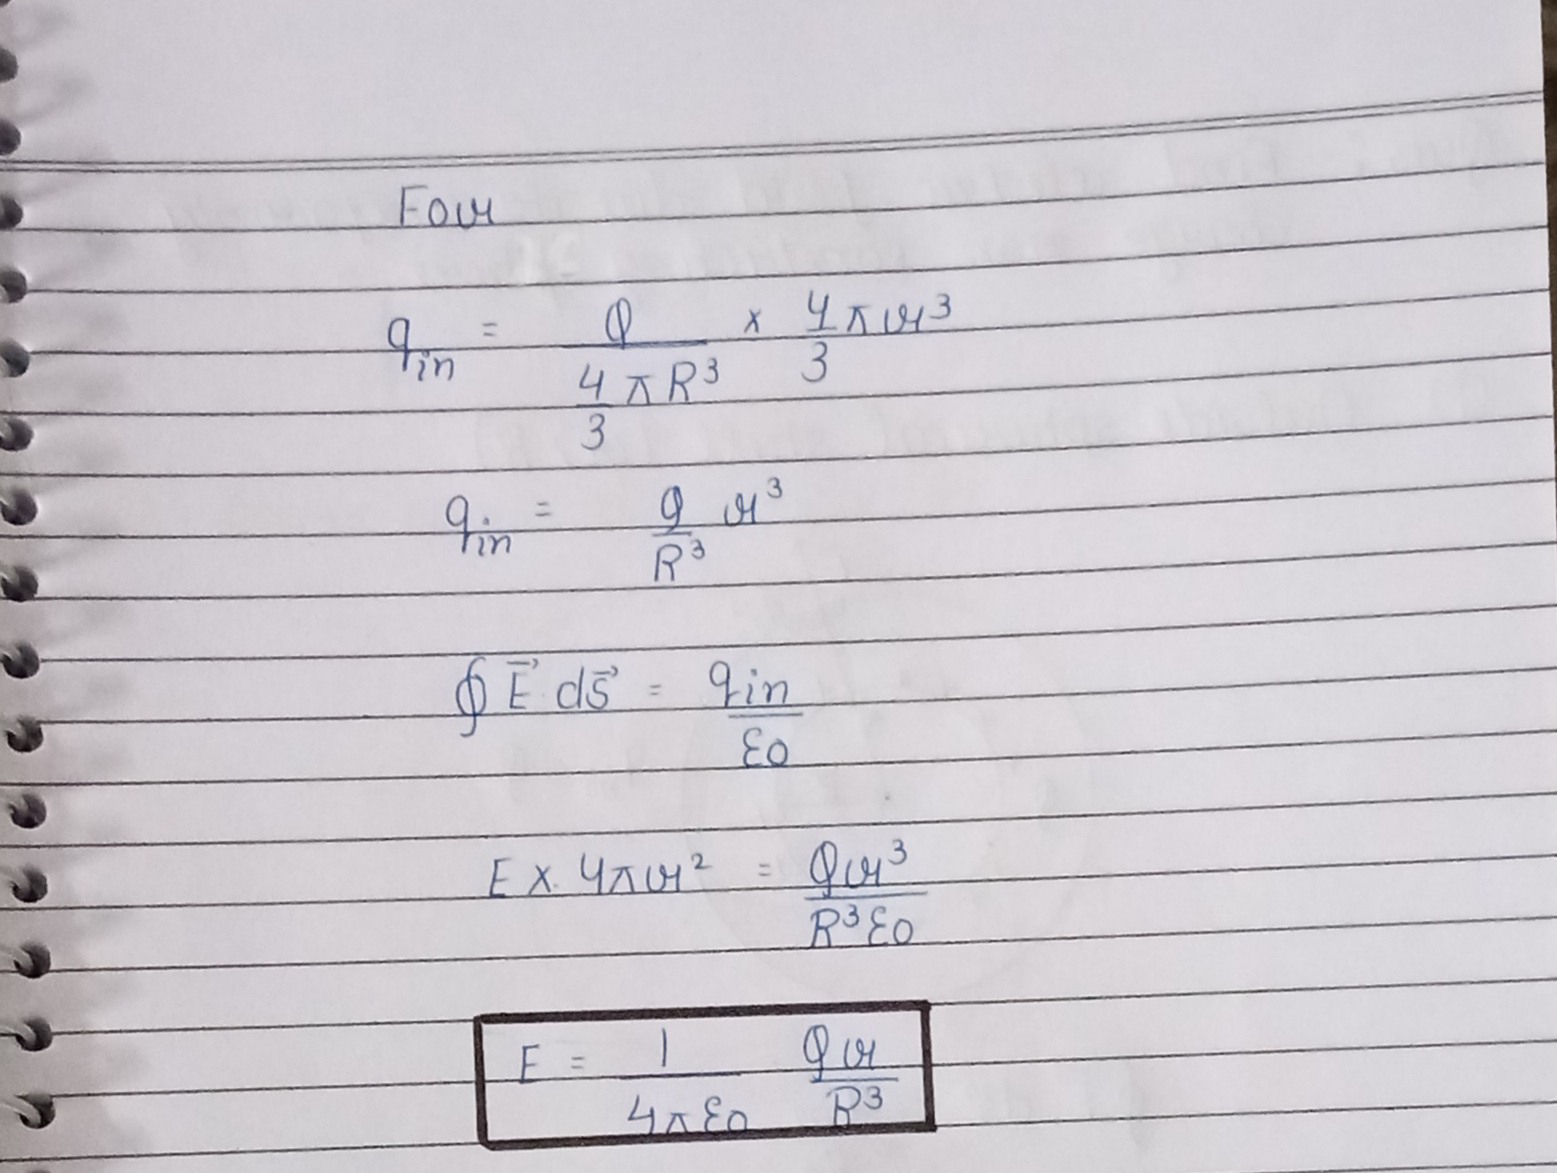 For
q_in = Q / (4/3 π R³) × 4/3 π r³
q_in = Q/R³ r³
∮ E⃗ · ds⃗ = q_in / ε0
E × 4πr² = Qr³ / R³ε0
E = 1/4πε0 Qr/R³